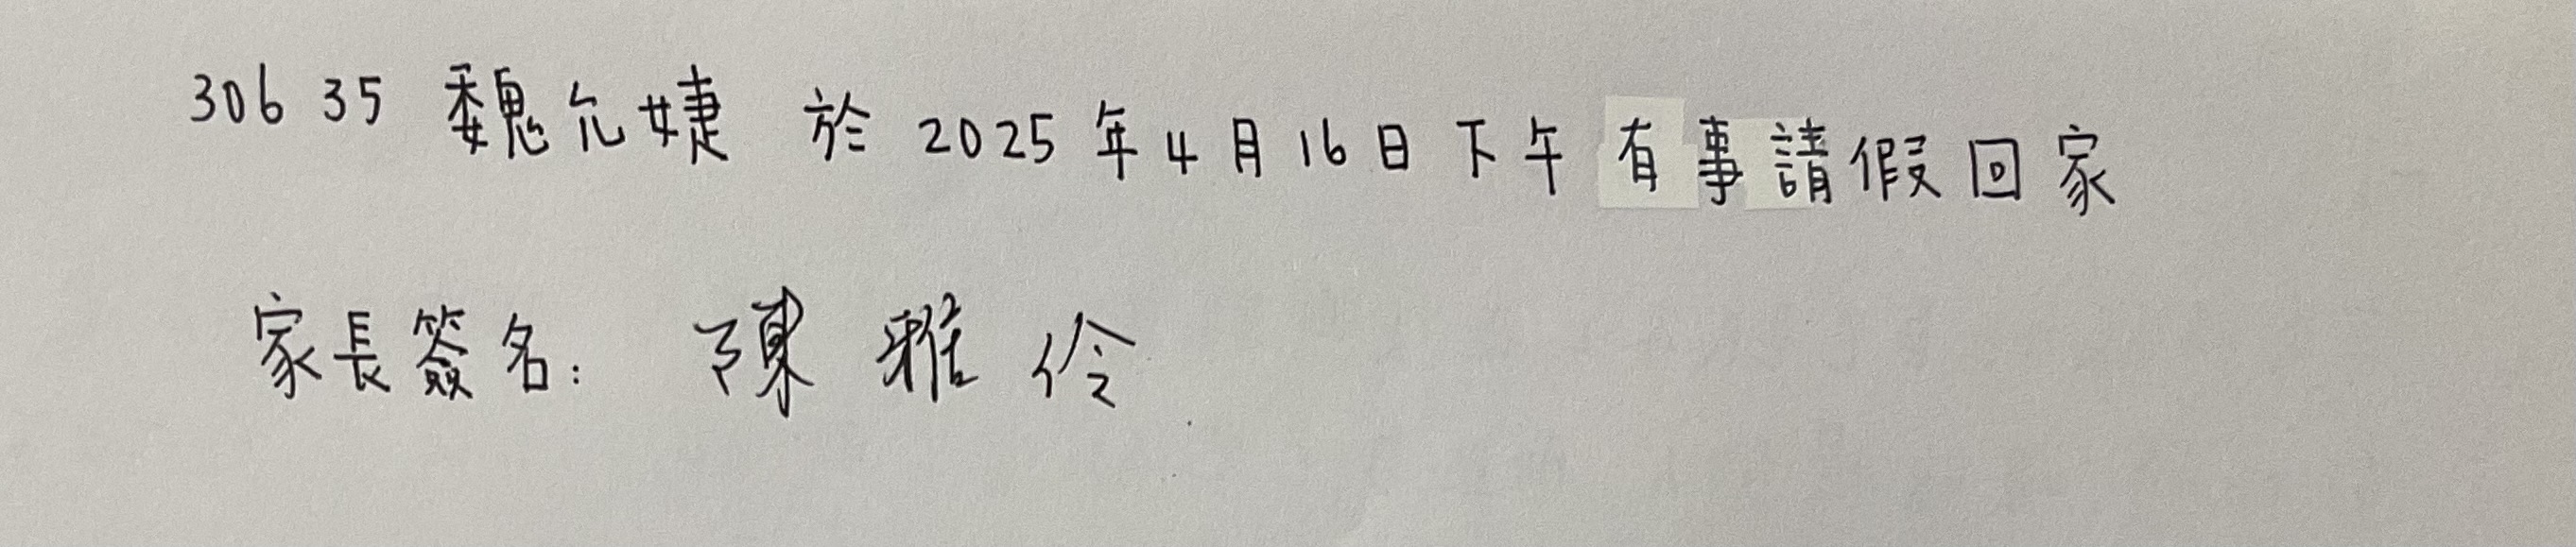 30635 魏允婕 於 2025年4月16日下午有事請假回家
家長簽名: 陳雅伶